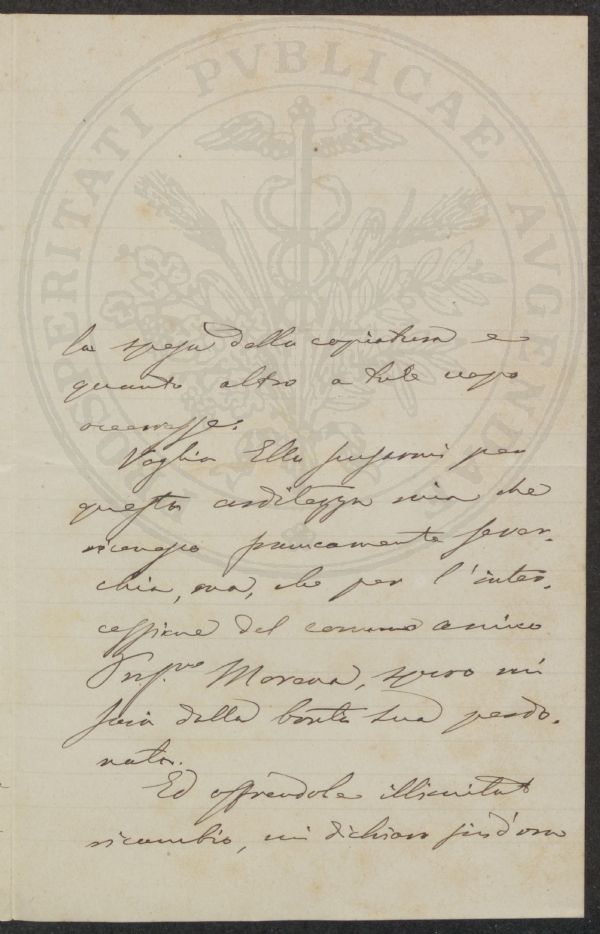 PROSPERITATI PVBLICAE AVGENDAE
la spesa della copiatura e
quanto altro a tale uopo
occorresse.
Voglia Ella scusarmi per
questa arditezza mia che
riconosco francamente sover-
chia, ma, che per l'inter-
cessione del comune amico
Prof.re Morena, spero mi
sarà dalla bontà sua perdo-
nata.
Ed offrendole illimitato
ricambio, mi dichiaro fin d'ora